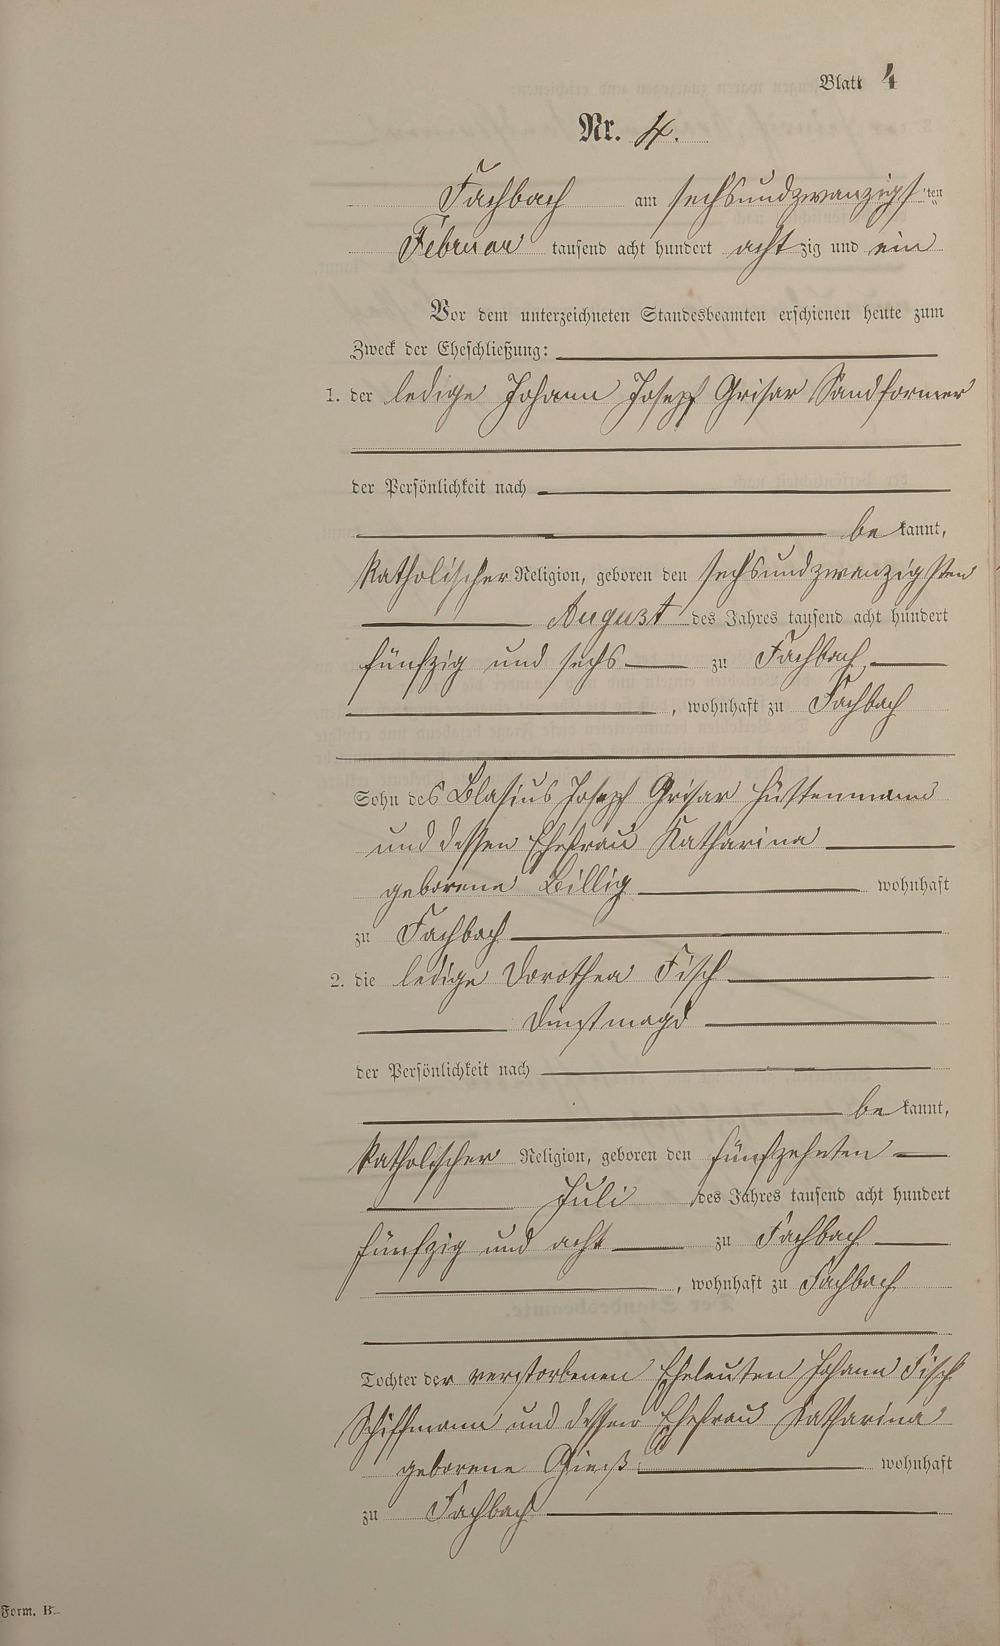 Blatt 4
Nr. 4.
Fachbach am sechsundzwanzigsten
Februar tausend acht hundert achtzig und ein
Vor dem unterzeichneten Standesbeamten erschienen heute zum
Zweck der Eheschließung:
1. der ledige Johann Josepf Grisar Sandformer
der Persönlichkeit nach
bekannt,
katholischer Religion, geboren den sechsundzwanzigsten
August des Jahres tausend acht hundert
fünfzig und sechs zu Fachbach,
, wohnhaft zu Fachbach
Sohn des Blasius Josepf Grisar Hüttenmann
und dessen Ehefrau Katharina
geborene Billig wohnhaft
zu Fachbach
2. die ledige Dorothea Fisch
Dinstmagd
der Persönlichkeit nach
bekannt,
katholischer Religion, geboren den fünfzehnten
Juli des Jahres tausend acht hundert
fünfzig und acht zu Fachbach
, wohnhaft zu Fachbach
Tochter der verstorbenen Eheleuten Johann Fisch
Schiffmann und dessen Ehefrau Katharina
geborene wohnhaft
zu Fachbach
Form. B.